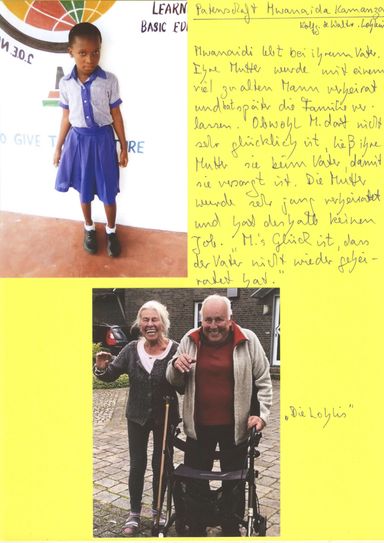 LEARN
BASIC ED
J.O.E. N
O GIVE T
URE
Patenschaft Mwanaida Kamanza
Rolf & Walter
Mwanaidi lebt bei ihrem Vater.
Ihre Mutter wurde mit einem
viel zu alten Mann verheirat
und hat später die Familie ver-
lassen. Obwohl M. dort nicht
sehr glücklich ist, ließ ihre
Mutter sie beim Vater, damit
sie versorgt ist. Die Mutter
wurde sehr jung verheiratet
und hat deshalb keinen
Job. "M.'s Glück ist, dass
der Vater nicht wieder gehei-
ratet hat."
"Die Lohlis"